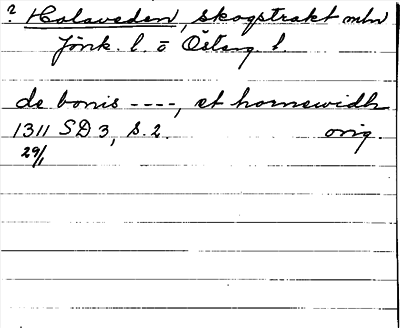 ? Holaveden, skogstrakt mln
Jönk. l. o Österg l.
de bonis ----, et hornewidh
1311 SD 3, s. 2. orig.
29/1